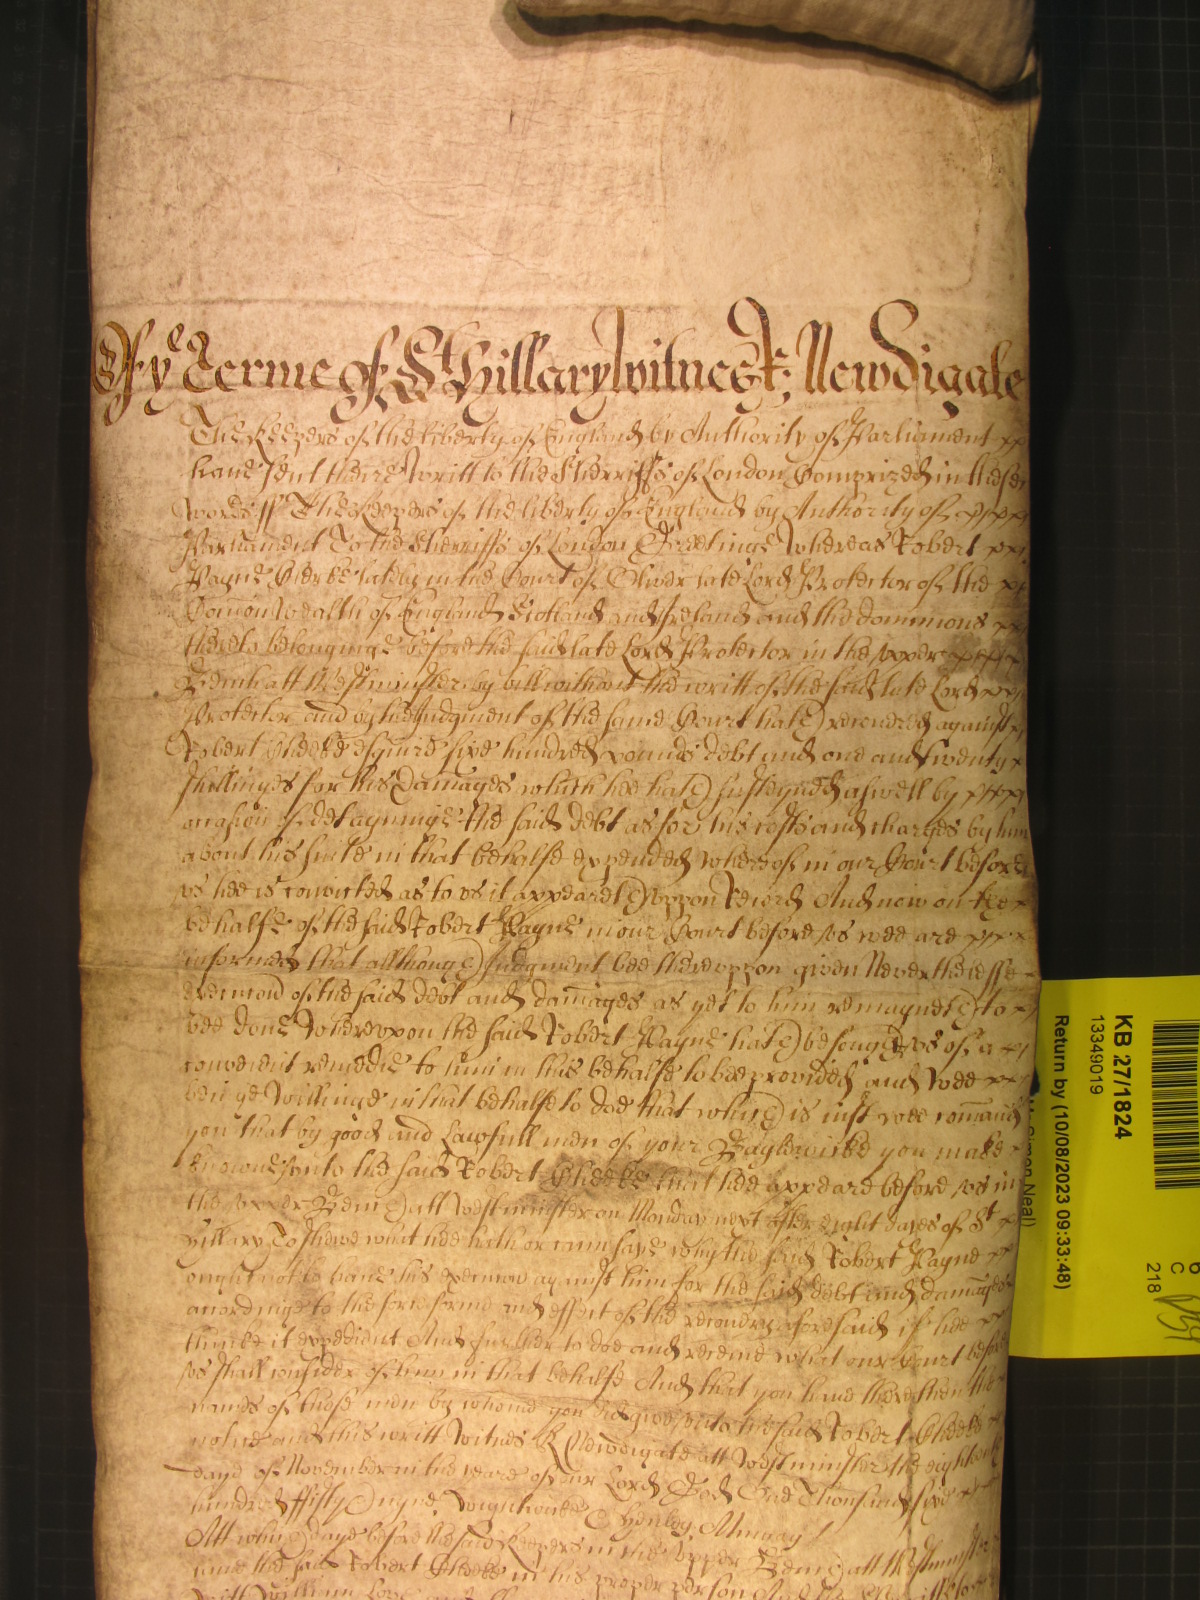 Of ye Terme of St Hillary Witnes R: NewDigate
The Keepers of the liberty of England by Authority of Parliament
haue sent theire Writt to the Sherriffs of London Comprized in these
words ss The Keepers of the liberty of England by Authority of
Parliament To the Sherriffs of London Greetinge Whereas Robert
Payne Clerke lately in the Court of Oliver late Lord Protector of the
Comonwealth of England Scotland and Ireland and the dominions
thereto belonginge before the said late Lord Protector in the upper
Bench att Westminster by bill without the writt of the said late Lord
Protector and by the Judgment of the same Court hath recovered against
Robert Cheeke esquire sixe hundred pounds debt and one and twenty
shillinges for his Damages which hee hath susteyned aswell by
occasion of deteyninge the said debt as for his costs and charges by him
about his suite in that behalfe expended whereof in our Court before
vs hee is convicted as to vs it appeareth vppon Record And now on the
behalfe of the said Robert Payne in our Court before vs wee are
informed that allthough Judgment bee therevppon given Neverthelesse
execucon of the said debt and damages as yet to him remayneth to
bee done Wherevpon the said Robert Payne hath besought vs of a
convenient remedie to him in this behalfe to bee provided and Wee
beinge Willinge in that behalfe to doe that which is iust wee comaund
you that by good and Lawfull men of your Baylewicke you make
knowne vnto the said Robert Cheeke that hee appeare before vs in
the vpper Bench att Westminster on Monday next after eight dayes of St
Hillary To shewe what hee hath or cann saye why the said Robert Payne
ought not to haue his execucon against him for the said debt and damages
accordinge to the force forme and effect of the recovery aforesaid if hee
thinke it expedient And further to doe and receive what our Court before
vs shall consider of him in that behalfe And that you haue there then the
names of those men by whome you did give vnto the said Robert Cheeke
notice and this writt Witnes R Newdigate att Westminster the eighteenth
daye of November in the yeare of our Lord God One Thousand sixe
hundred ffifty nyne Wightwicke Henley
Att which daye before the said Keepers in the vpper Bench att Westminster
came the said Robert Cheeke in his proper person And the Sherriffs to
KB 27/1824
13349019
Return by (10/08/2023 09:33:48)
Simon Neal)
C
218